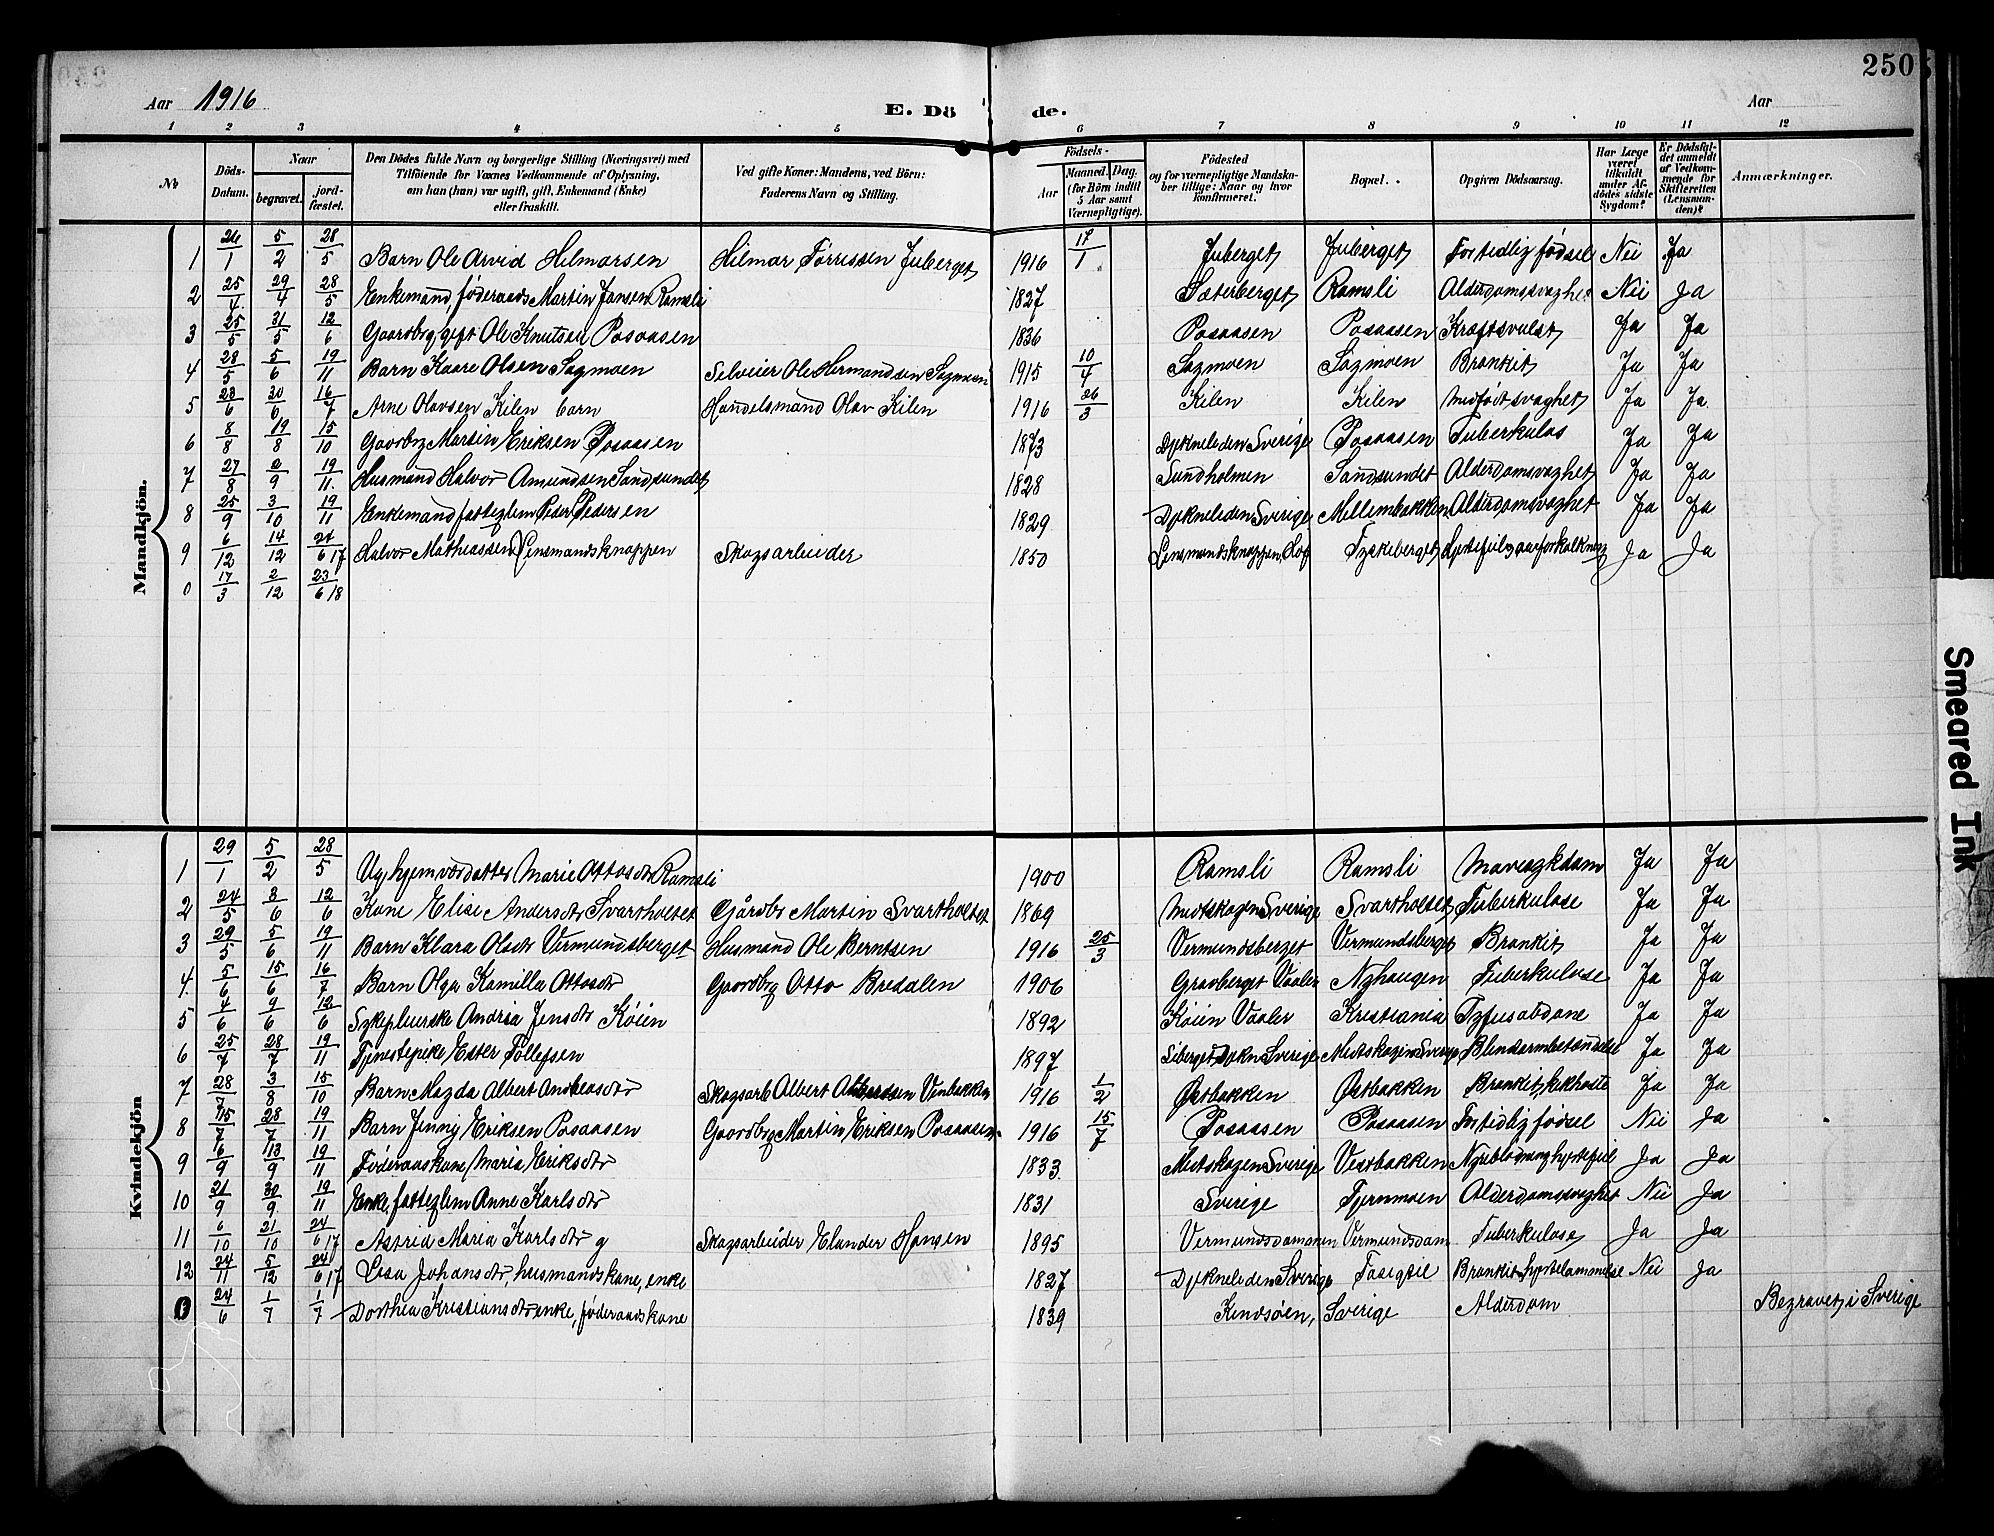 250
Aar 1916 E. Dö de. Aar
1 2 3 4 5 6 7 8 9 10 11 12
No Döds-Datum. Naar begravet. jord-fæstet. Den Dödes fulde Navn og borgerlige Stilling (Næringsvei) med Tilföiende for Voxnes Vedkommende af Oplysning, om han (hun) var ugift, gift, Enkemand (Enke) eller fraskilt. Ved gifte Koner: Mandens, ved Börn: Faderens Navn og Stilling. Födsels- Aar Maaned. Dag. (for Börn indtil 5 Aar samt Værnepligtige). Födested og for værnepligtige Mandskaber tillige: Naar og hvor konfirmeret. Bopæl. Opgiven Dödsaarsag. Har Læge været tilkaldt under Afdödes sidste Sygdom? Er Dödsfaldet anmeldt af Vedkommende for Skifteretten (Lensmanden)? Anmærkninger.
Mandkjön.
1 26/1 5/2 28/5 Barn Ole Arvid Hilmarsen Hilmar Torrissen Juberget 1916 17/1 Juberget Juberget For tidlig födsel Nei Ja
2 25/4 29/4 28/5 Enkemand, föderaads Martin Jansen Ramsli 1827 Sæterberget Ramsli Alderdomssvaghet Nei Ja
3 25/5 31/5 12/6 Gaardbrg, gift Ole Knutsen Posaasen 1836 Posaasen Posaasen Kræftsvulst Ja Ja
4 28/5 5/6 19/11 Barn Kaare Olsen Sagmoen Selveier Ole Hermandsen Sagmoen 1915 10/4 Sagmoen Sagmoen Bronkit Ja Ja
5 28/6 30/6 16/7 Arne Olavsen Kilen barn Handelsmand Olav Kilen 1916 26/3 Kilen Kilen Medfödt svaghet Ja Ja
6 8/8 19/8 15/10 Gaardbrg Martin Eriksen Posaasen 1873 Dyekneleden Sverige Posaasen Tuberkulos Ja Ja
7 27/8 2/9 19/11 Husmand Halvor Amundsen Sandsundet 1828 Sundholmen Sandsundet Alderdomsvaghet Ja Ja
8 25/9 3/10 19/11 Enkemand fattiglem Peder Pedersen 1829 Dyekneleden Sverige Mellembakken Alderdomsvaghet Ja Ja
9 6/12 14/12 24/6 17 Halvor Mathiassen Lensmandsknappen Skogsarbeider 1850 Lensmandsknappen, Hof Tyskeberget Hjertefeil og aareforkalkning Ja Ja
0 17/3 2/12 23/6 18
Kvindekjön
1 29/1 5/2 28/5 Ug. hjemv. datter Marie Ottosdtr Ramsli 1900 Ramsli Ramsli Ja Ja
2 24/5 8/6 12/6 Kone Elise Andersdtr Svartholtet Gårdbr Martin Svartholtet 1869 Medskogen Sverige Svartholtet Tuberkulose Ja Ja
3 29/5 5/6 19/11 Barn Klara Olsdtr Vermundsberget Husmand Ole Berntsen 1916 25/3 Vermundsberget Vermundsberget Bronkit Ja Ja
4 5/6 15/6 16/7 Barn Olga Kamilla Ottosdtr Gaardbrg Otto Bredalen 1906 Gravberget Vaaler Nyhaugen Tuberkulose Ja Ja
5 4/6 9/6 12/6 Sykepleierske Andrea Jensdtr Köien 1892 Köien Vaaler Kristiania Tyfus abdone Ja Ja
6 25/7 28/7 19/11 Tjenestepike Ester Tollefsen 1897 Medskogen Sverige Blindtarmbetændelse Ja Ja
7 28/7 3/8 15/10 Barn Magda Albert Andreasdtr Skogsarb Albert 1916 1/2 Østbakken Østbakken Bronkit, kikhoste Ja Ja
8 15/7 28/7 19/11 Barn Jenny Eriksen Posaasen Gaardbrg Martin Eriksen Posaasen 1916 15/7 Posaasen Posaasen For tidlig födsel Nei Ja
9 6/9 13/9 19/11 Föderaadskone Maria Eriksdtr 1833 Medskogen Sverige Vestbakken Nyreblödning hjertefeil Ja Ja
10 21/9 30/9 19/11 Enke, fattiglem Anne Karlsdtr 1831 Sverige Tjernmoen Alderdomssvaghet Nei Ja
11 6/10 21/10 24/6 17 Astrid Maria Karlsdtr g Skogsarbeider Elander Hansen 1895 Vermundsdammen Vermundsdam Tuberkulose Ja Ja
12 24/11 5/12 24/6 17 Lisa Johansdtr husmandskone, enke 1827 Dyekneleden Sverige Bronkit hjertelammelse Nei Ja
0 24/6 1/7 1/7 Dorthea Kristiansdtr enke, föderaadskone 1839 Kindsöen, Sverige Alderdom Begravet i Sverige
Smeared Ink